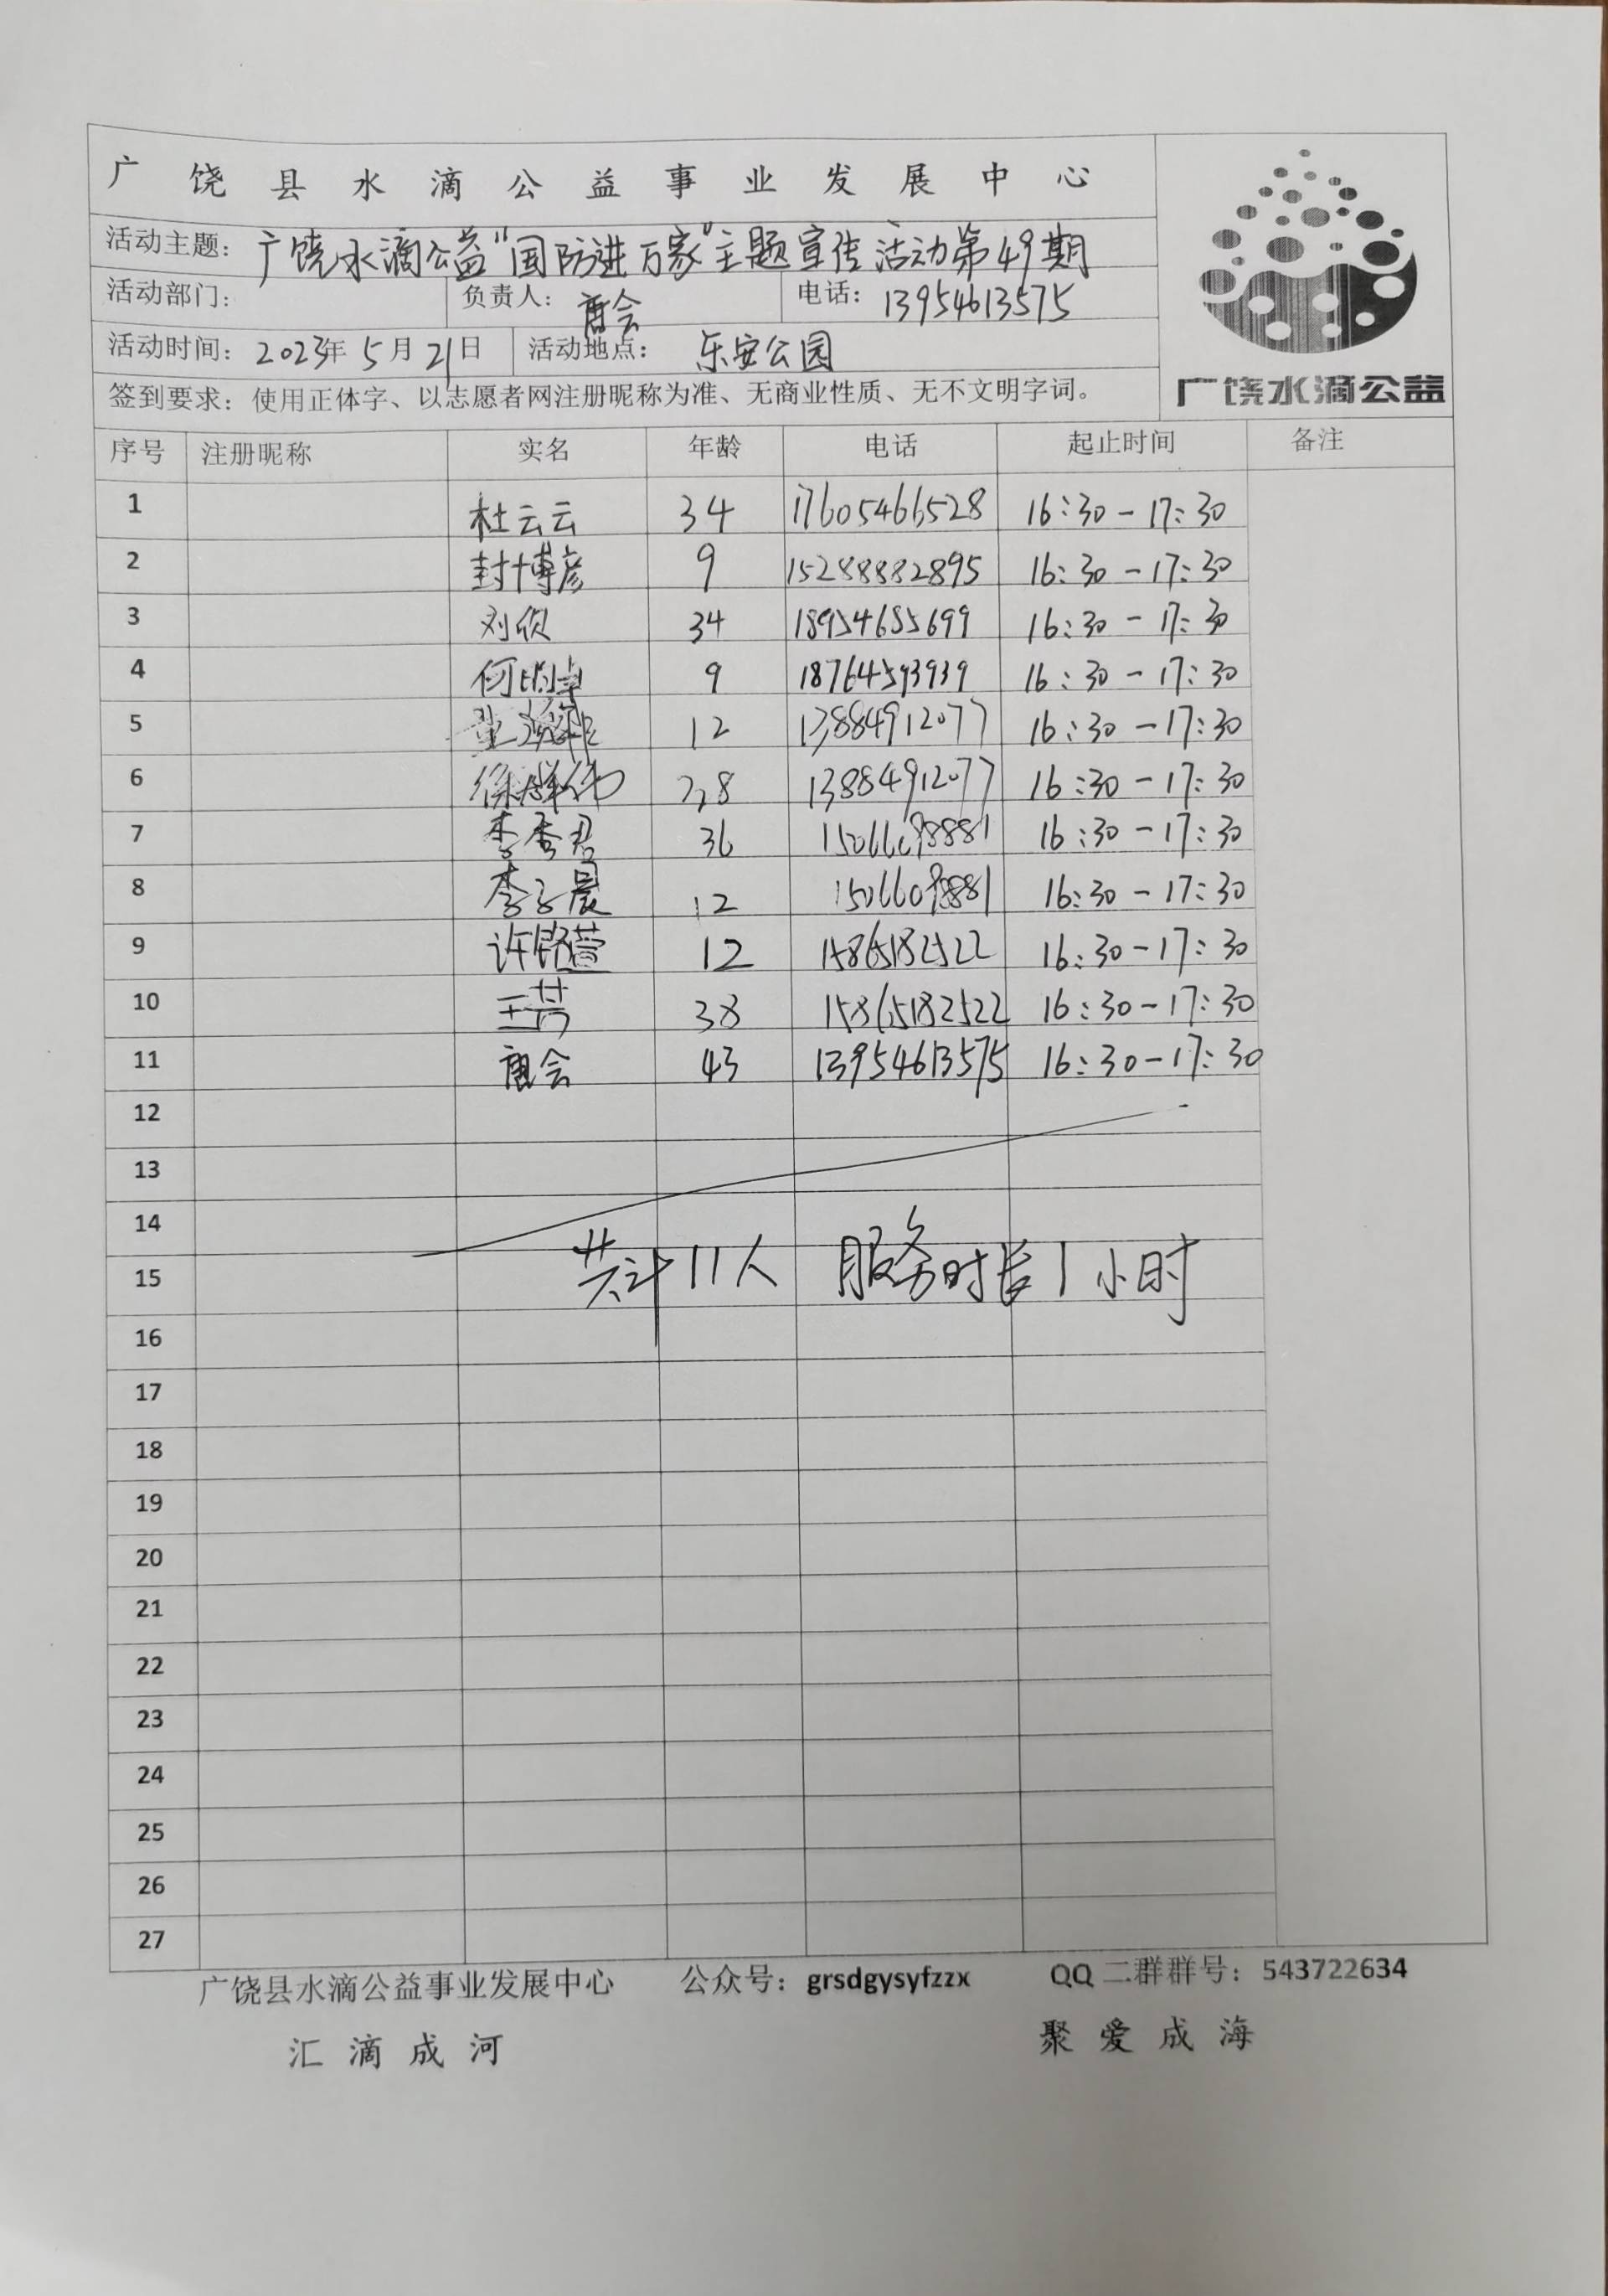 广饶县水滴公益事业发展中心
活动主题：广饶水滴公益“国防进万家”主题宣传活动第49期
活动部门： 负责人：唐会 电话：13954613575
活动时间：2023年5月21日 活动地点：乐安公园
签到要求：使用正体字、以志愿者网注册昵称为准、无商业性质、无不文明字词。
广饶水滴公益
序号 注册昵称 实名 年龄 电话 起止时间 备注
1 杜云云 34 17605466528 16:30-17:30
2 封博彦 9 15288882895 16:30-17:30
3 刘 34 18954685699 16:30-17:30
4 何 9 18764593939 16:30-17:30
5 12 13884912077 16:30-17:30
6 徐 13884912077 16:30-17:30
7 李秀君 36 15066098881 16:30-17:30
8 李子晨 12 15066098881 16:30-17:30
9 许铭萱 12 15865182522 16:30-17:30
10 王芳 38 15865182522 16:30-17:30
11 唐会 43 13954613575 16:30-17:30
12
13
14
15 共计11人 服务时长1小时
16
17
18
19
20
21
22
23
24
25
26
27
广饶县水滴公益事业发展中心 公众号：grsdgysyfzzx QQ二群群号：543722634
汇滴成河 聚爱成海